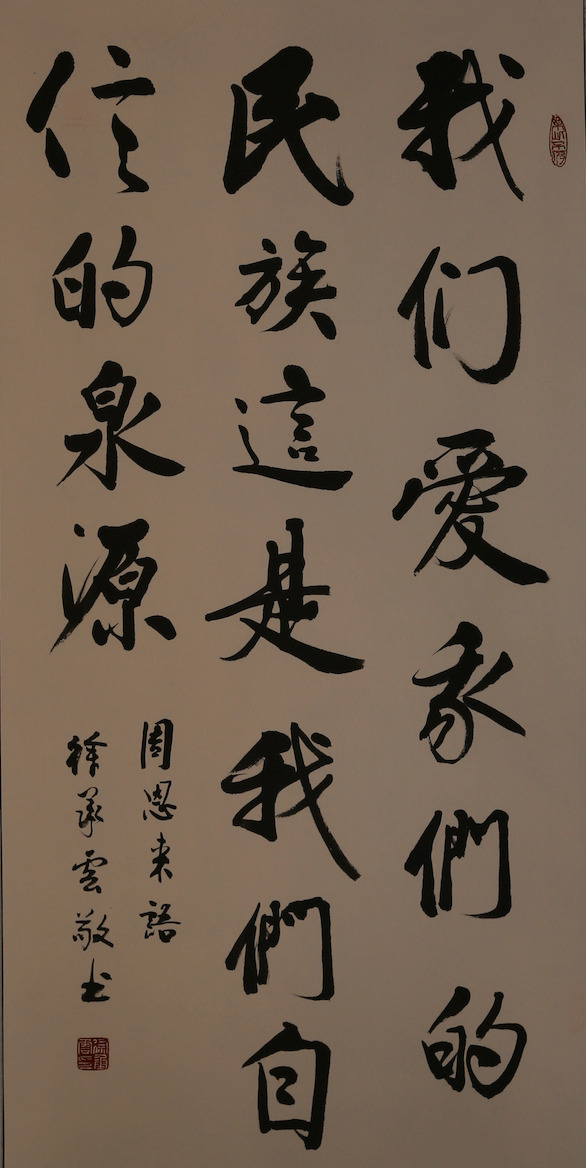 我们爱我們的
民族這是我們自
信的泉源
周恩来語
徐承雲敬书